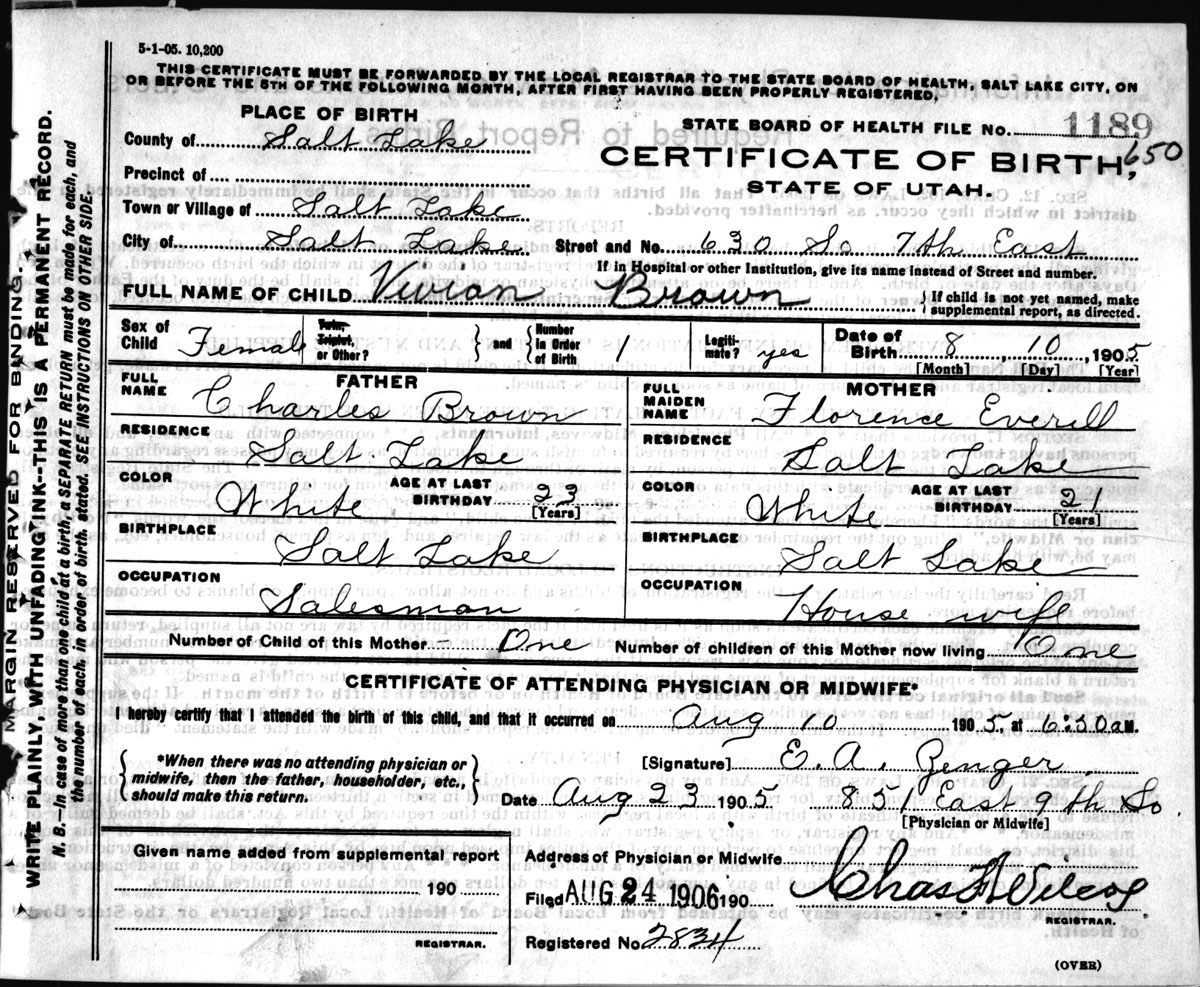 5-1-05. 10,200
THIS CERTIFICATE MUST BE FORWARDED BY THE LOCAL REGISTRAR TO THE STATE BOARD OF HEALTH, SALT LAKE CITY, ON
OR BEFORE THE 5TH OF THE FOLLOWING MONTH, AFTER FIRST HAVING BEEN PROPERLY REGISTERED,
PLACE OF BIRTH
STATE BOARD OF HEALTH FILE NO. 1189
650
County of Salt Lake
CERTIFICATE OF BIRTH,
Precinct of
STATE OF UTAH.
Town or Village of Salt Lake
City of Salt Lake Street and No. 630 So 7th East
If in Hospital or other Institution, give its name instead of Street and number.
FULL NAME OF CHILD Vivian Brown { If child is not yet named, make
supplemental report, as directed.
Sex of Child Female Twin, Triplet, or Other? } and { Number in Order of Birth 1 Legiti-mate? yes Date of Birth 8 10, 1905
[Month] [Day] [Year]
FATHER
FULL NAME Charles Brown
RESIDENCE Salt Lake
COLOR White AGE AT LAST BIRTHDAY 23 [Years]
BIRTHPLACE Salt Lake
OCCUPATION Salesman
MOTHER
FULL MAIDEN NAME Florence Everill
RESIDENCE Salt Lake
COLOR White AGE AT LAST BIRTHDAY 21 [Years]
BIRTHPLACE Salt Lake
OCCUPATION House wife
Number of Child of this Mother One Number of children of this Mother now living One
CERTIFICATE OF ATTENDING PHYSICIAN OR MIDWIFE*
I hereby certify that I attended the birth of this child, and that it occurred on Aug 10 1905, at 6:30 a M.
{ *When there was no attending physician or
midwife, then the father, householder, etc.,
should make this return. }
[Signature] E. A. Zenger
Date Aug 23 1905. 851 East 9th So
[Physician or Midwife]
Given name added from supplemental report
190
REGISTRAR.
Address of Physician or Midwife
Filed AUG 24 1906 190 Chas
REGISTRAR.
Registered No. 2834
(OVER)
MARGIN RESERVED FOR BINDING.
WRITE PLAINLY, WITH UNFADING INK--THIS IS A PERMANENT RECORD.
N. B.--In case of more than one child at a birth, a SEPARATE RETURN must be made for each, and
the number of each, in order of birth, stated. SEE INSTRUCTIONS ON OTHER SIDE.